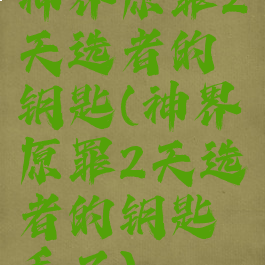 神界原罪2
天选者的
钥匙(神界
原罪2天选
者的钥匙